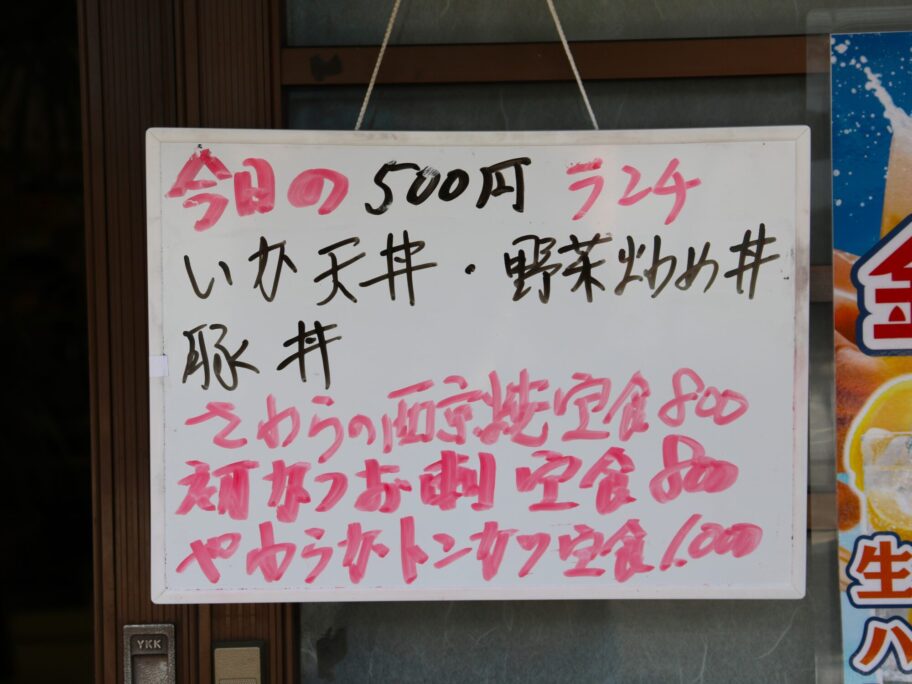 今日の500円ランチ
いか天丼・野菜炒め丼
豚丼
さわらの西京焼定食800
初がつお刺定食800
やわらかトンカツ定食1,000
YKK
金
生
ハ